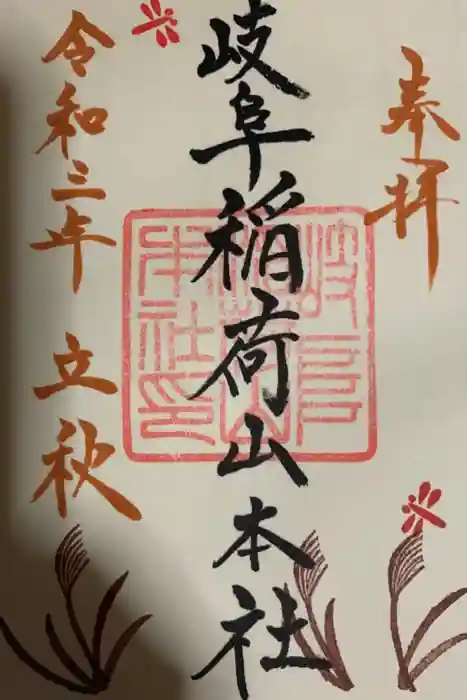 奉拝
岐阜稲荷山本社
令和三年 立秋